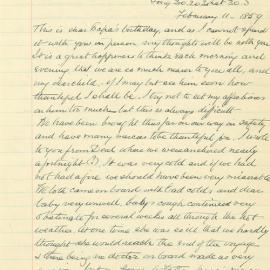 Long 30. 20. 32 Lat 30. S
February 11. 1859
This is dear Papa's birthday, and as I cannot spend
it with you in person my thoughts will be with you.
It is a great happiness to think each morning and
evening that we are so much nearer to you all, and
my dear child, if I may but see him now how
thankful I shall be. I try not to set my affections
on him too much but this is always difficult.
We have been brought thus far on our way in safety
and have many mercies to be thankful for. I wrote
to you from Deal where we were anchored nearly
a fortnight (?). It was very cold and if we had
not had a fire we should have been very miserable
We both came on board with bad colds, and dear
baby very unwell. baby's cough continued very
obstinate for several weeks all through the hot
weather. At one time she was so ill that we hardly
thought she would reach the end of the voyage
& there being no doctor on board made us very